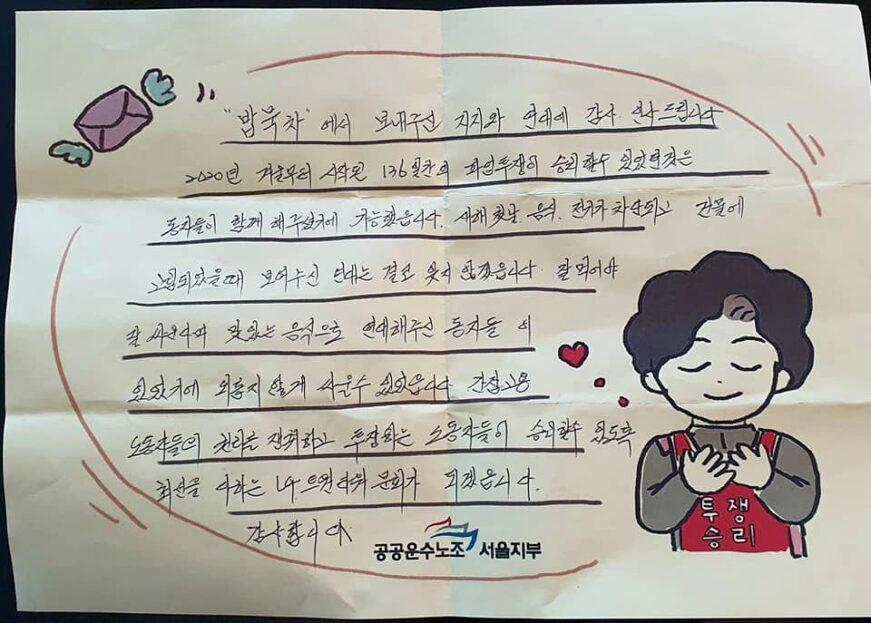 "밥묵차"에서 보내주신 지지와 연대에 감사 인사드립니다
2020년 겨울부터 시작된 136일간의 파업투쟁이 승리할수 있었던것은
동지들이 함께 해주셨기에 가능했습니다. 새해 첫날 음식, 전기가 차단되고 건물에
고립되었을때 보여주신 연대는 결코 잊지 않겠습니다. 잘 먹어야
잘 싸운다며 맛있는 음식으로 연대해주신 동지들 이
있었기에 외롭지 않게 싸울수 있었습니다 간접고용
노동자들의 권리를 쟁취하고 투쟁하는 노동자들이 승리할수 있도록
최선을 다하는 LG트윈타워 분회가 되겠습니다.
감사합니다.
공공운수노조 서울지부
투쟁
승리